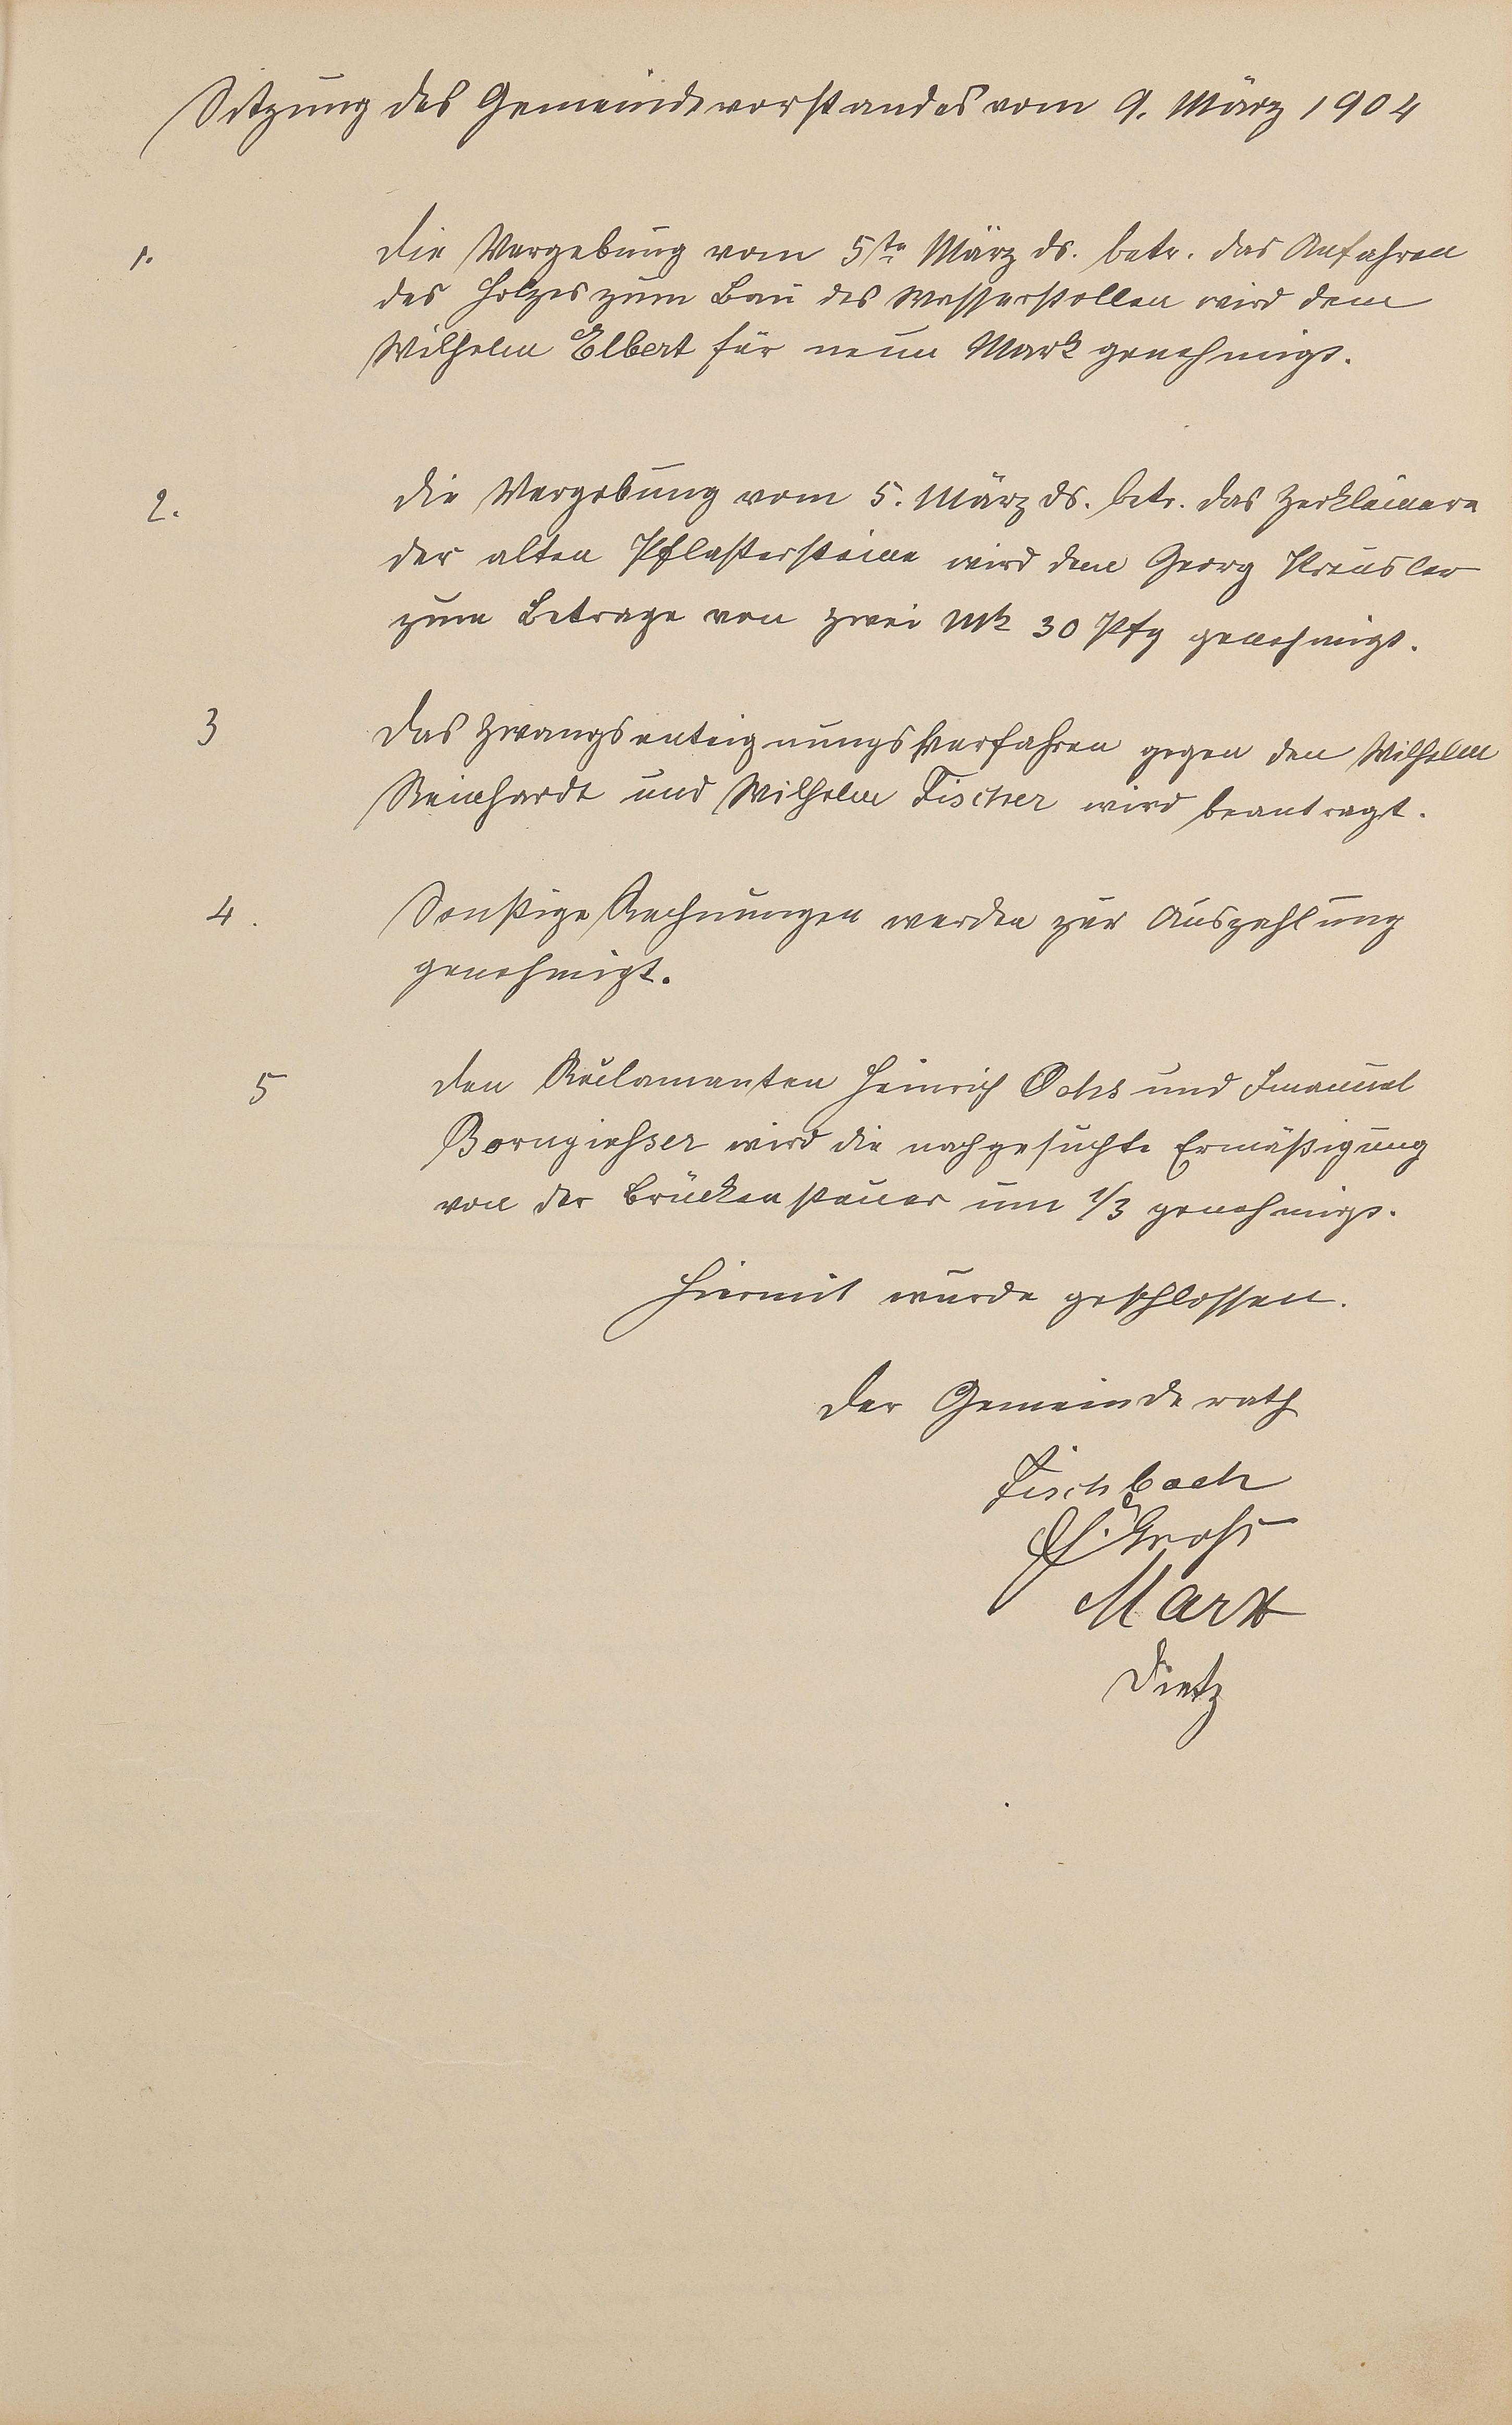 Sitzung des Gemeindevorstandes vom 9. März 1904
1. die Vergebung vom 5te März ds. betr. das Anfahren
des Holzes zum Bau des Wasserstollen wird dem
Wilhelm Elbert für neun Mark genehmigt.
2. die Vergebung vom 5. März ds. betr. das Zerkleinern
der alten Pflastersteine wird dem Georg Preusler
zum Betrage von zwei Mk 30 Pfg genehmigt.
3 das Zwangsenteignungsverfahren gegen den Wilhelm
Reinhardt und Wilhelm Fischer wird beantragt.
4. Sonstige Rechnungen werden zur Auszahlung
genehmigt.
5 den Reclamanten Heinrich Ochs und Emanuel
Borngiesser wird die nachgesuchte Ermäßigung
von der Brückensteuer um 1/3 genehmigt.
Hiermit wurde geschlossen.
der Gemeinderath
Fischbach
Gross
Marx
Dietz